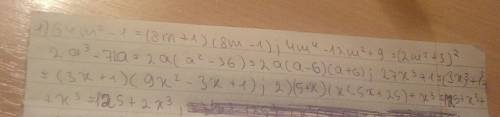 1) 64m² - 1 = (8m+1)(8m-1); 4m⁴ - 12m² + 9 = (2m² + 3)²
2a³ - 72a = 2a(a² - 36) = 2a(a-6)(a+6); 27x³ + 1 = (3x)³ + 1 =
= (3x + 1)(9x² - 3x + 1); 2) (5+x)(x² - 5x + 25) + x³ = 125 + x³ +
+ x³ = 125 + 2x³;